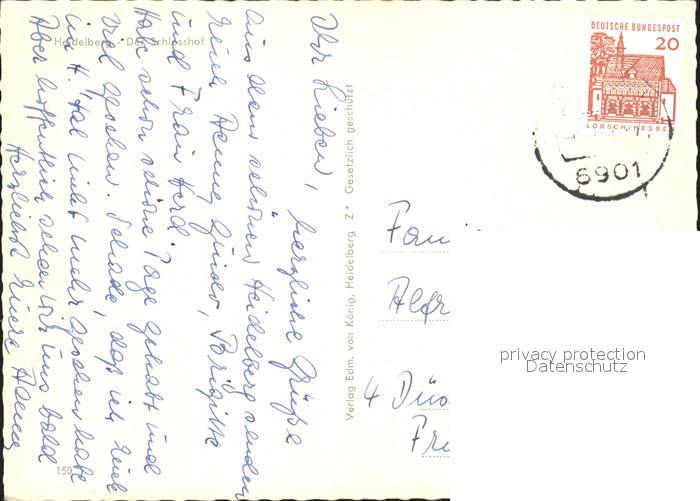 Heidelberg - Der Schlosshof
Ihr Lieben, herzliche Grüße
aus dem schönen Heidelberg senden
Euch Hanne, Guido, Brigitte
und Frau Herd
Hab schon schöne Tage gehabt und
viel gesehen. Schade, daß ich Euch
in H. nicht mehr gesehen habe
Aber hoffentlich sehen wir uns bald
Herzlichst Eure Hanne
150
Verlag Edm. von König, Heidelberg Z* Gesetzlich geschützt
DEUTSCHE BUNDESPOST
20
LORSCH/HESSEN
6901
Fam
Alfr
4 Düs
Fr
privacy protection
Datenschutz